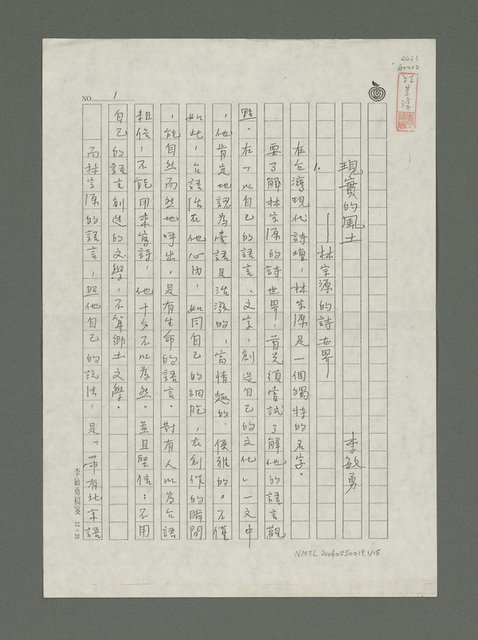 現實的風土
——林宗源的詩世界——
李敏勇
1.
在台灣現代詩壇，林宗源是一個獨特的名字。
要了解林宗源的詩世界，首先須嘗試了解他的語言觀
點。在「以自己的語言、文字，創造自己的文化」一文中
，他肯定地認為臺語是活潑的，高情趣的，優雅的。不僅
如此，台語活在他心內，如同自己的細胞，在創作的瞬間
，能自然而然地呼出，是有生命的語言。對有人以為台語
粗俗，不能用來寫詩，他十分不以為然。並且堅信：不用
自己的語言創造的文學，不算鄉土文學。
而林宗源的語言，照他自己的說法，是「帶有北京語
NO 1
李敏勇稿箋
NMTL20060250019, 1/15